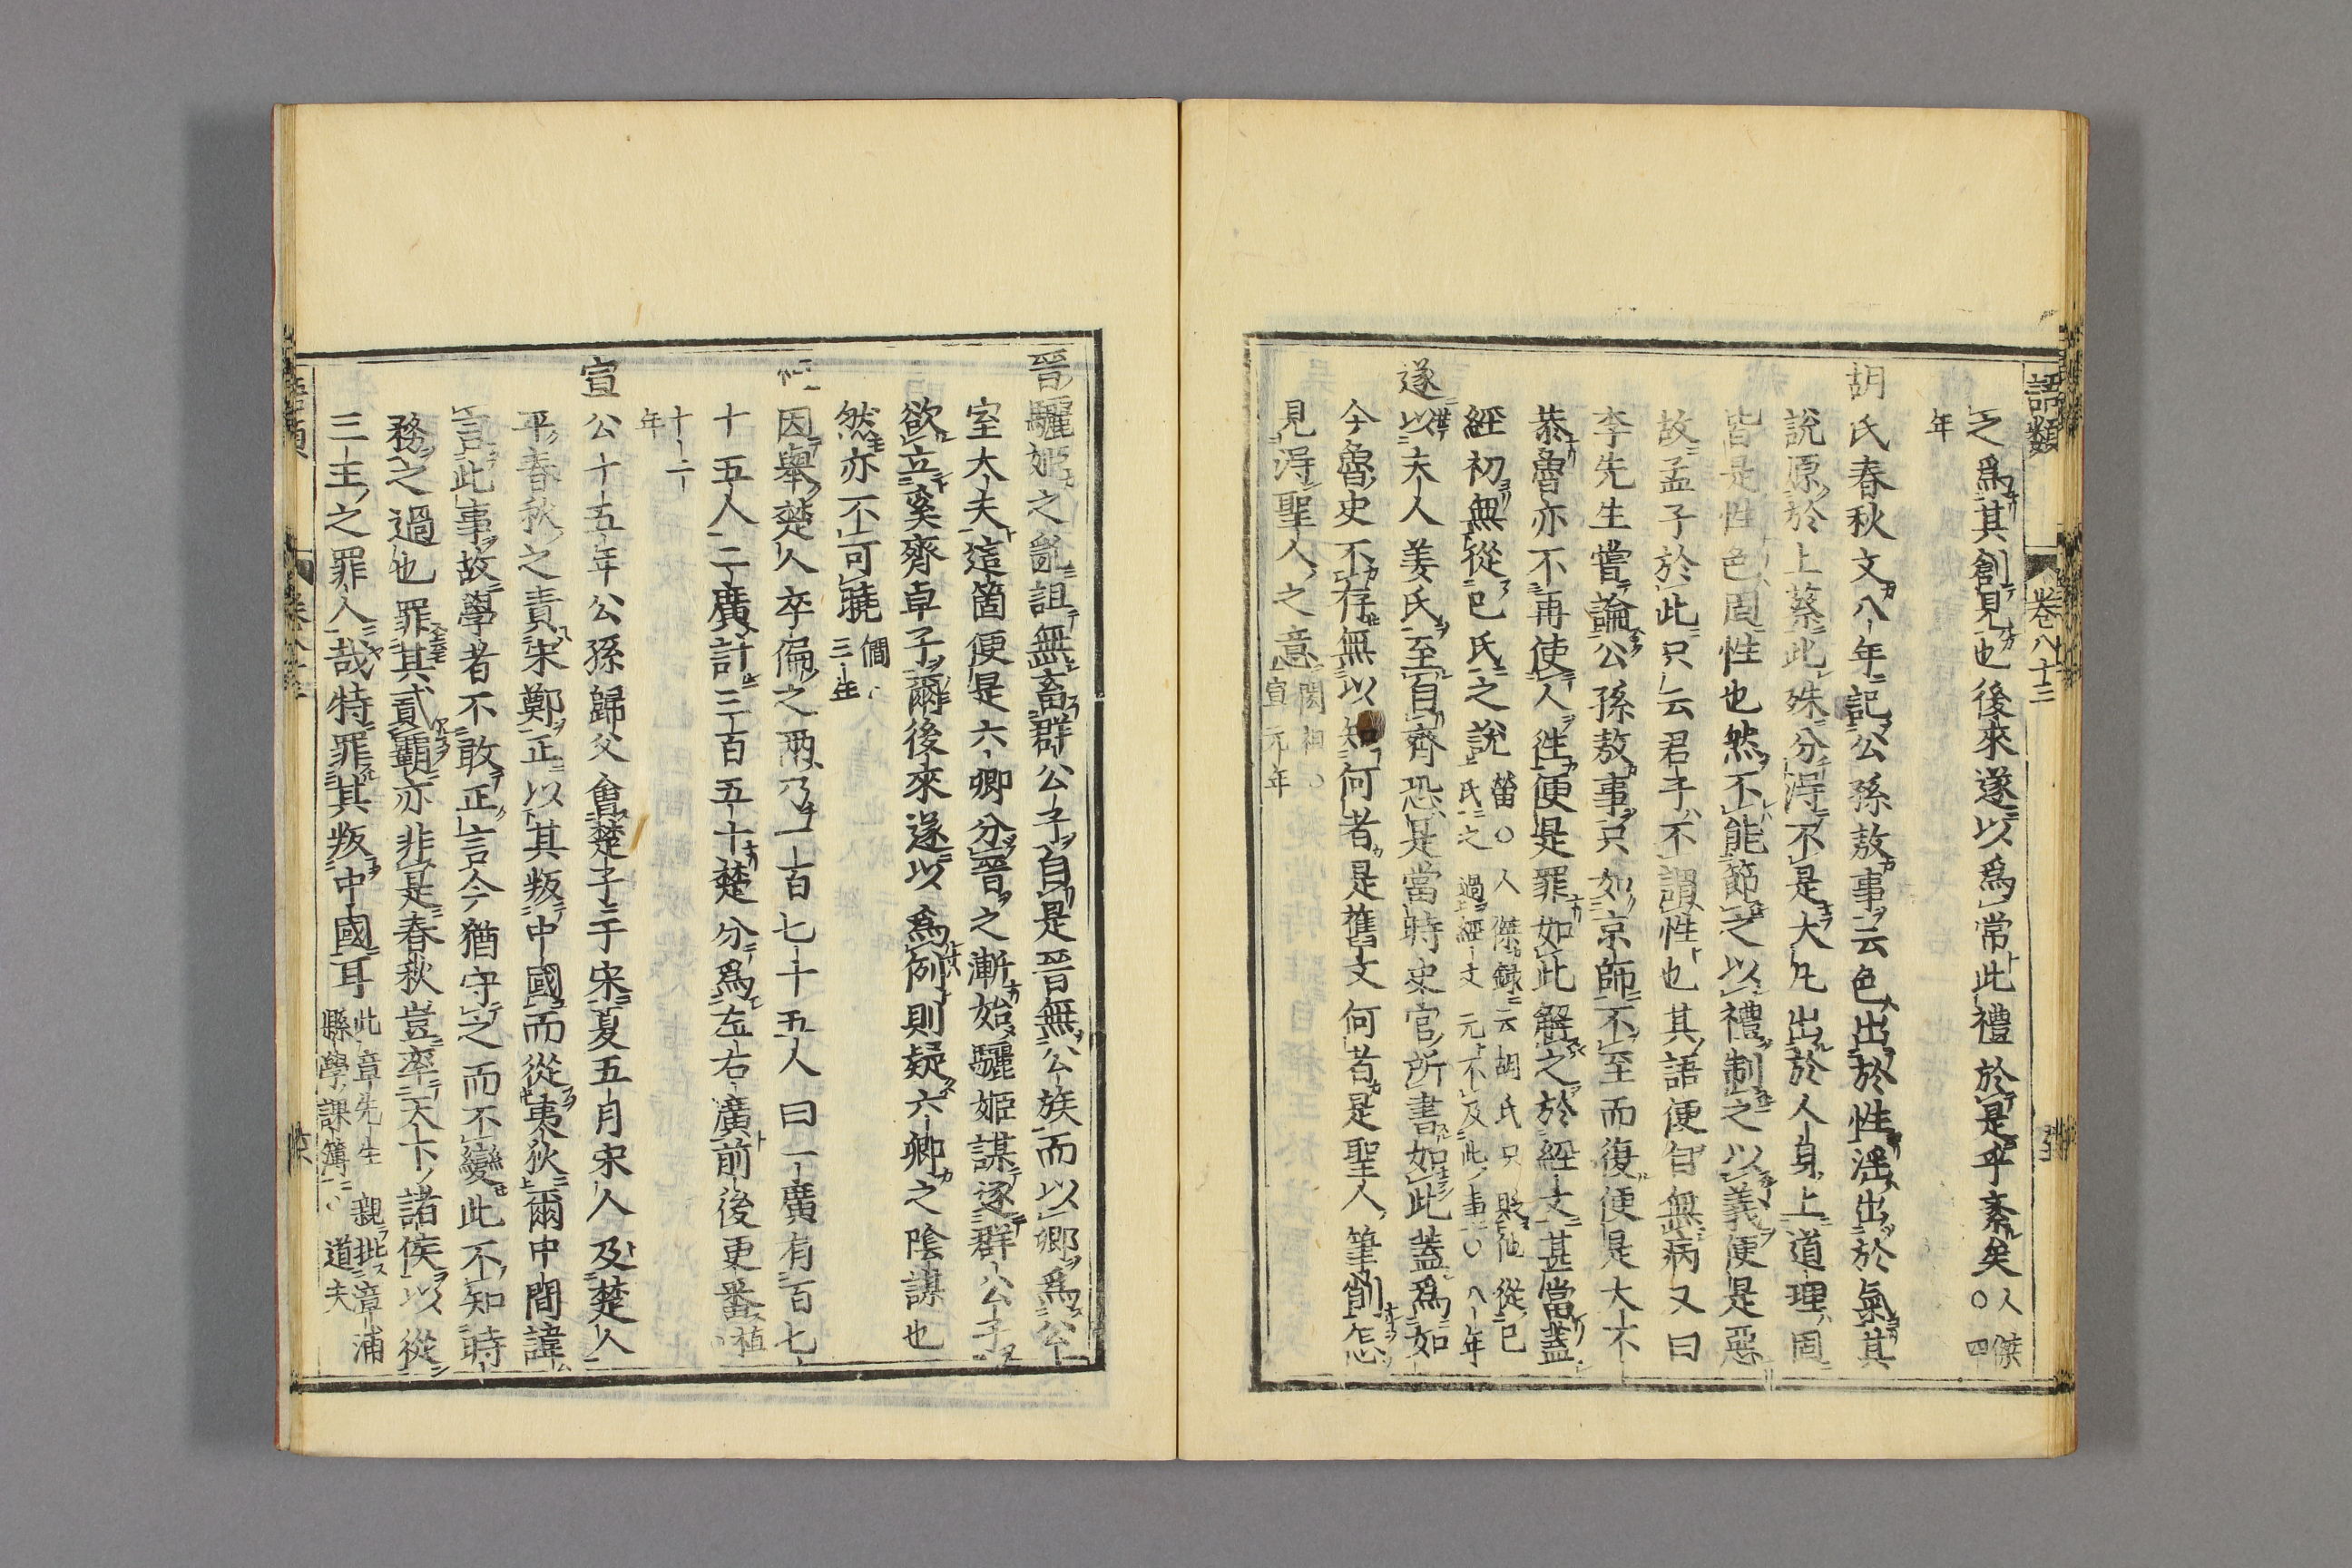 語類 卷八十三
之爲其創見也後來遂以爲常此禮於是乎紊矣人傑○四
年
胡氏春秋文八年記公孫敖事云色出於性淫出於氣其
說原於上蔡此殊分得不是大凡出於人身上道理固
皆是性色固性也然不能節之以禮制之以義便是惡
故孟子於此只云君子不謂性也其語便自無病又曰
李先生嘗論公孫敖事只如京師不至而復便是大不
恭魯亦不再使人往便是罪如此解之於經文甚當蓋
經初無從已氏之說㽦○人傑録云胡氏只貶他從已氏之過經文元不及此事○八年
遂以夫人姜氏至自齊恐是當時史官所書如此蓋爲如
今魯史不存無以知何者是舊文何者是聖人筆削怎
見得聖人之意閎祖○宣元年
晉驪姬之亂詛無畜群公子自是晉無公族而以卿爲公
室大夫這箇便是六卿分晉之漸始驪姬謀逐群公子
欲立奚齊卓子爾後來遂以爲例則疑六卿之陰謀也
然亦不可曉僩○三年
因舉楚人卒偏之兩乃一百七十五人曰一廣有百七
十五人二廣計三百五十楚分爲左右廣前後更番植
十二
年
宣公十五年公孫歸父會楚子于宋夏五月宋人及楚人
平春秋之責宋鄭正以其叛中國而從夷狄爾中間諱
言此事故學者不敢正言今猶守之而不變此不知時
務之過也罪其貳霸亦非是春秋豈率天下諸侯以從
三王之罪人哉特罪其叛中國耳此章先生親批漳浦縣學課簿○道夫
語類